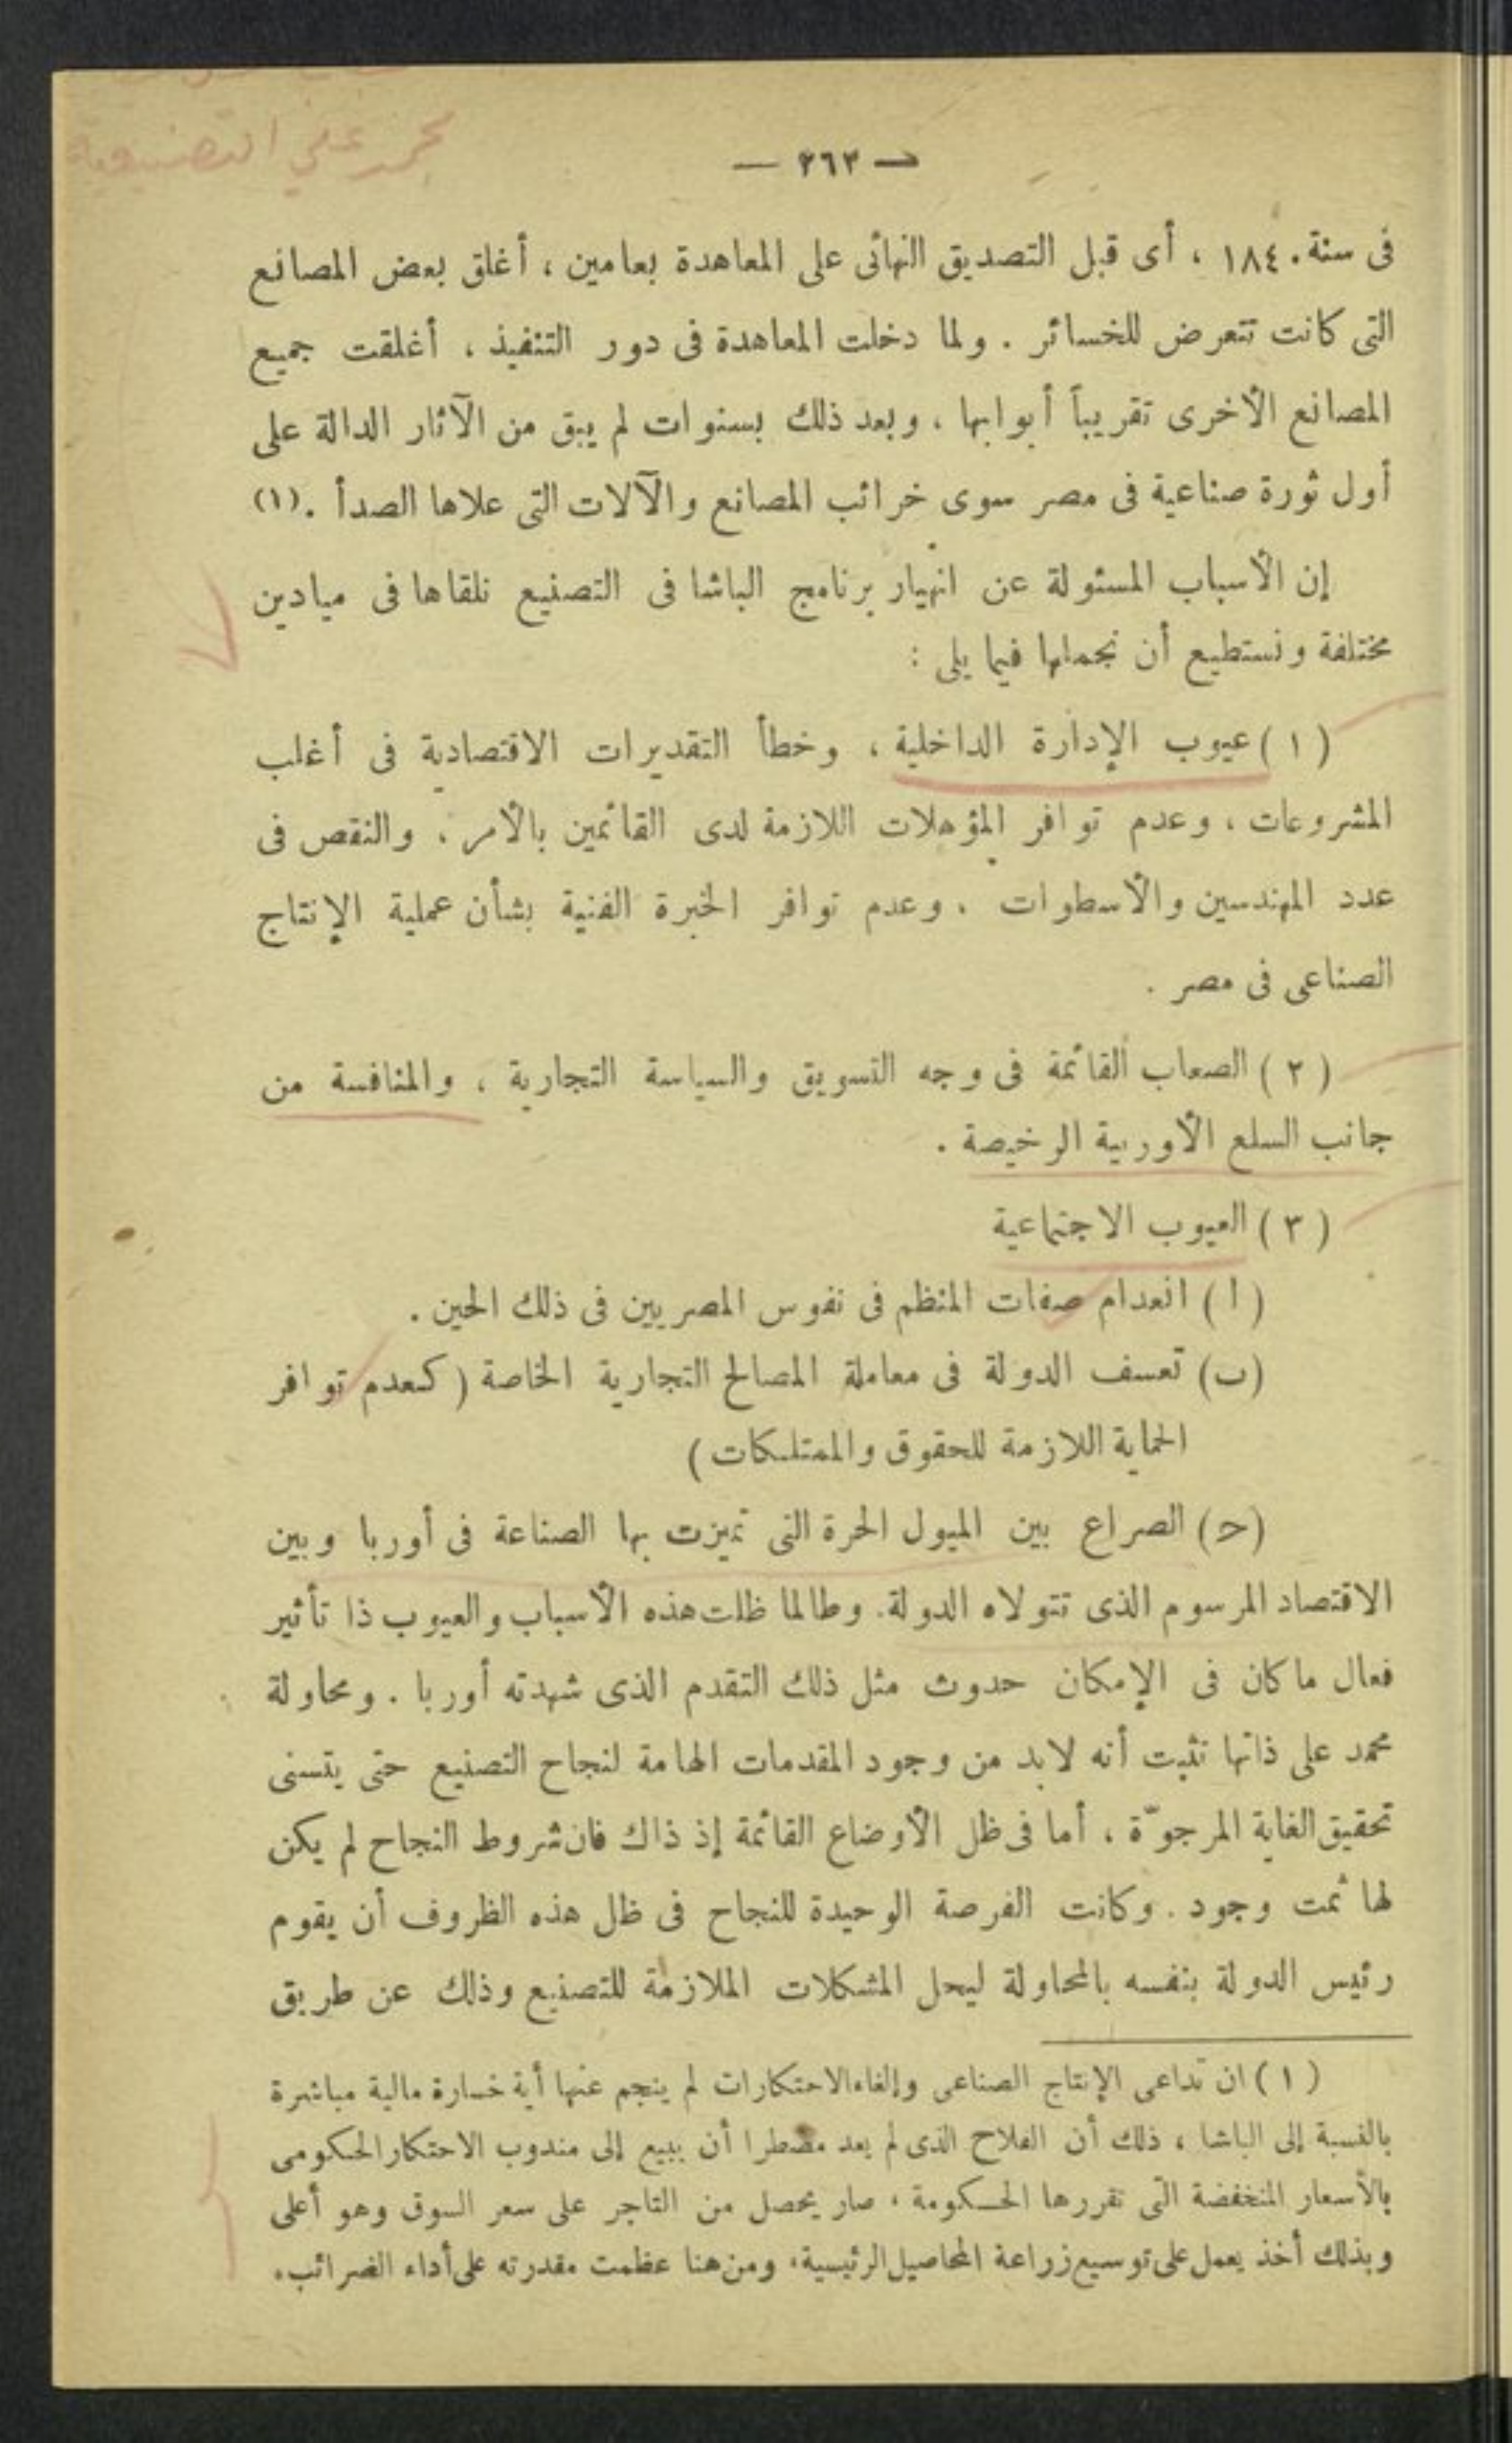 محمد علي التصنيعية
— ٢٦٣ —
فى سنة ١٨٤٠ ، أى قبل التصديق النهائى على المعاهدة بعامين ، أغلق بعض المصانع
التى كانت تتعرض للخسائر . ولما دخلت المعاهدة فى دور التنفيذ ، أغلقت جميع
المصانع الأخرى تقريباً أبوابها ، وبعد ذلك بسنوات لم يبق من الآثار الدالة على
أول ثورة صناعية فى مصر سوى خرائب المصانع والآلات التى علاها الصدأ . (١)
إن الأسباب المسئولة عن انهيار برنامج الباشا فى التصنيع نلقاها فى ميادين
مختلفة ونستطيع أن نجملها فيما يلى :
( ١ ) عيوب الإدارة الداخلية ، وخطأ التقديرات الاقتصادية فى أغلب
المشروعات ، وعدم توافر المؤهلات اللازمة لدى القائمين بالأمر ، والنقص فى
عدد المهندسين والأسطوات ، وعدم توافر الخبرة الفنية بشأن عملية الإنتاج
الصناعى فى مصر .
( ٢ ) الصعاب القائمة فى وجه التسويق والسياسة التجارية ، والمنافسة من
جانب السلع الأوربية الرخيصة .
( ٣ ) العيوب الاجتماعية
( ا ) انعدام صفات المنظم فى نفوس المصريين فى ذلك الحين .
(ب) تعسف الدولة فى معاملة المصالح التجارية الخاصة ( كعدم توافر
الحماية اللازمة للحقوق والممتلكات )
(ح) الصراع بين الميول الحرة التى تميزت بها الصناعة فى أوربا وبين
الاقتصاد المرسوم الذى تتولاه الدولة . وطالما ظلت هذه الأسباب والعيوب ذا تأثير
فعال ما كان فى الإمكان حدوث مثل ذلك التقدم الذى شهدته أوربا . ومحاولة
محمد على ذاتها تثبت أنه لابد من وجود المقدمات الهامة لنجاح التصنيع حتى يتسنى
تحقيق الغاية المرجوّة ، أما فى ظل الأوضاع القائمة إذ ذاك فان شروط النجاح لم يكن
لها ثمت وجود . وكانت الفرصة الوحيدة للنجاح فى ظل هذه الظروف أن يقوم
رئيس الدولة بنفسه بالمحاولة ليحل المشكلات الملازمة للتصنيع وذلك عن طريق
( ١ ) ان تداعى الإنتاج الصناعى وإلغاء الاحتكارات لم ينجم عنها أية خسارة مالية مباشرة
بالنسبة إلى الباشا ، ذلك أن الفلاح الذى لم يعد مضطرا أن يبيع إلى مندوب الاحتكار الحكومى
بالأسعار المنخفضة التى تقررها الحكومة ، صار يحصل من التاجر على سعر السوق وهو أعلى
وبذلك أخذ يعمل على توسيع زراعة المحاصيل الرئيسية، ومن هنا عظمت مقدرته على أداء الضرائب.